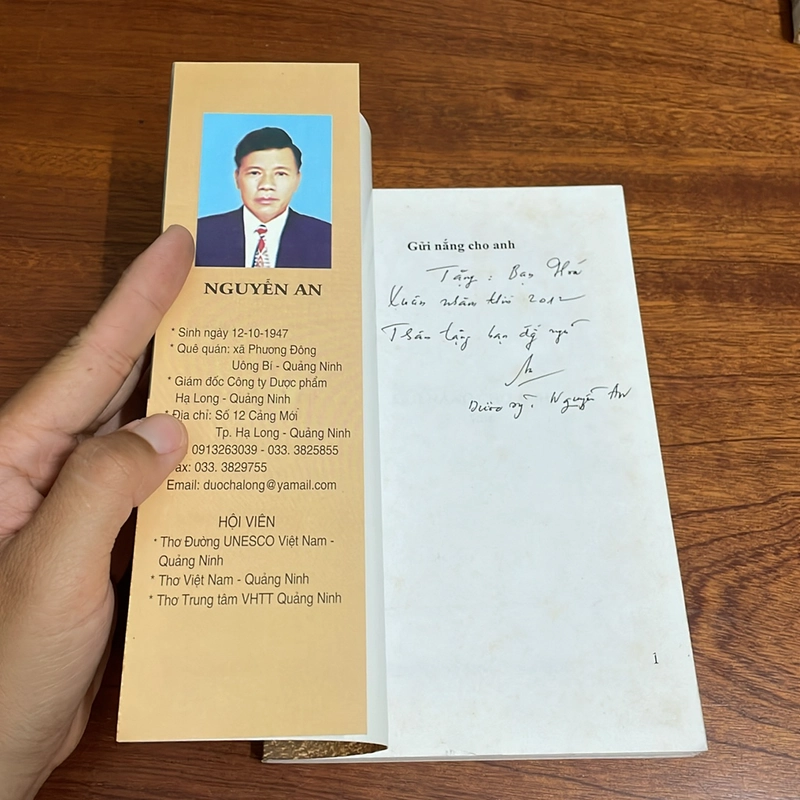 NGUYỄN AN
* Sinh ngày 12-10-1947
* Quê quán: xã Phương Đông
Uông Bí - Quảng Ninh
* Giám đốc Công ty Dược phẩm
Hạ Long - Quảng Ninh
* Địa chỉ: Số 12 Cảng Mới
Tp. Hạ Long - Quảng Ninh
0913263039 - 033. 3825855
Fax: 033. 3829755
Email: duochalong@yamail.com
HỘI VIÊN
* Thơ Đường UNESCO Việt Nam -
Quảng Ninh
* Thơ Việt Nam - Quảng Ninh
* Thơ Trung tâm VHTT Quảng Ninh
Gửi nắng cho anh
Tặng: Bạn
Xuân nhâm thìn 2012
Thân tặng bạn
Dược sỹ. Nguyễn An
1